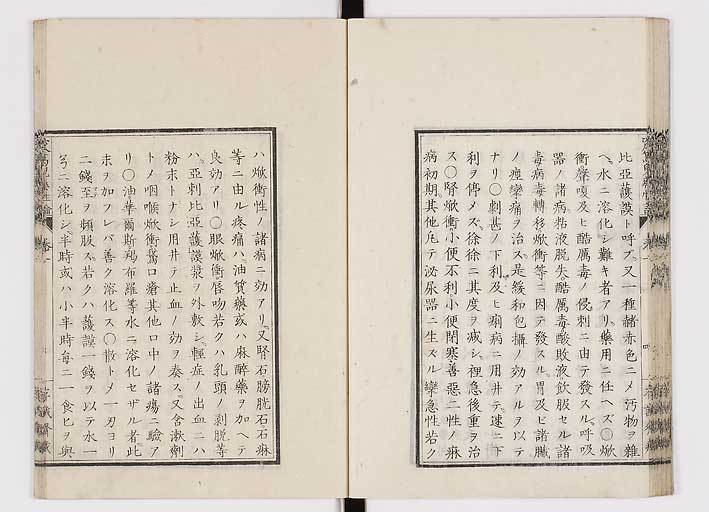 比亞護謨ト呼ブ、又一種赭赤色ニメ汚物ヲ雜
ヘ、水ニ溶化シ難キ者アリ、藥用ニ任ヘズ○焮
衝聲嗄及ヒ酷厲毒ノ侵刺ニ由テ發スル、呼吸
器ノ諸病、粘液脱失、酷厲毒酸敗液飲服セル諸
毒病、毒轉移焮衝等ニ因テ發スル、胃及ヒ諸臓
ノ痙攣痛ヲ治ス、是緩和包攝ノ効アルヲ以テ
ナリ○劇甚ノ下利及ヒ痢病ニ用井テ速ニ下
利ヲ停メズ、徐徐ニ其度ヲ減シ、裡急後重ヲ治
ス○腎焮衝、小便不利、小便閉塞、善惡二性ノ痳
病初期、其他凡テ泌尿器ニ生スル、攣急性若ク
ハ焮衝性ノ諸病ニ効アリ、又腎石膀胱石石痳
等ニ由ル疼痛ハ、油質藥或ハ麻醉藥ヲ加ヘテ
良効アリ○眼焮衝、唇吻若クハ乳頭ノ剥脱等
ハ、亞剌比亞護謨漿ヲ外敷シ、輕症ノ出血ニハ
粉末トナシ用井テ止血ノ効ヲ奏ス、又含漱劑
トメ咽喉焮衝鵞口瘡其他口中ノ諸瘍ニ驗ア
リ○油華爾斯羯布羅等水ニ溶化セザル者、此
末ヲ加フレバ善ク溶化ス○散トメ一刃ヨリ
二錢至ヲ頓服ス、若クハ護謨一錢ヲ以テ水一
ニ溶化シ半時或ハ小半時每ニ一食匕ヲ與